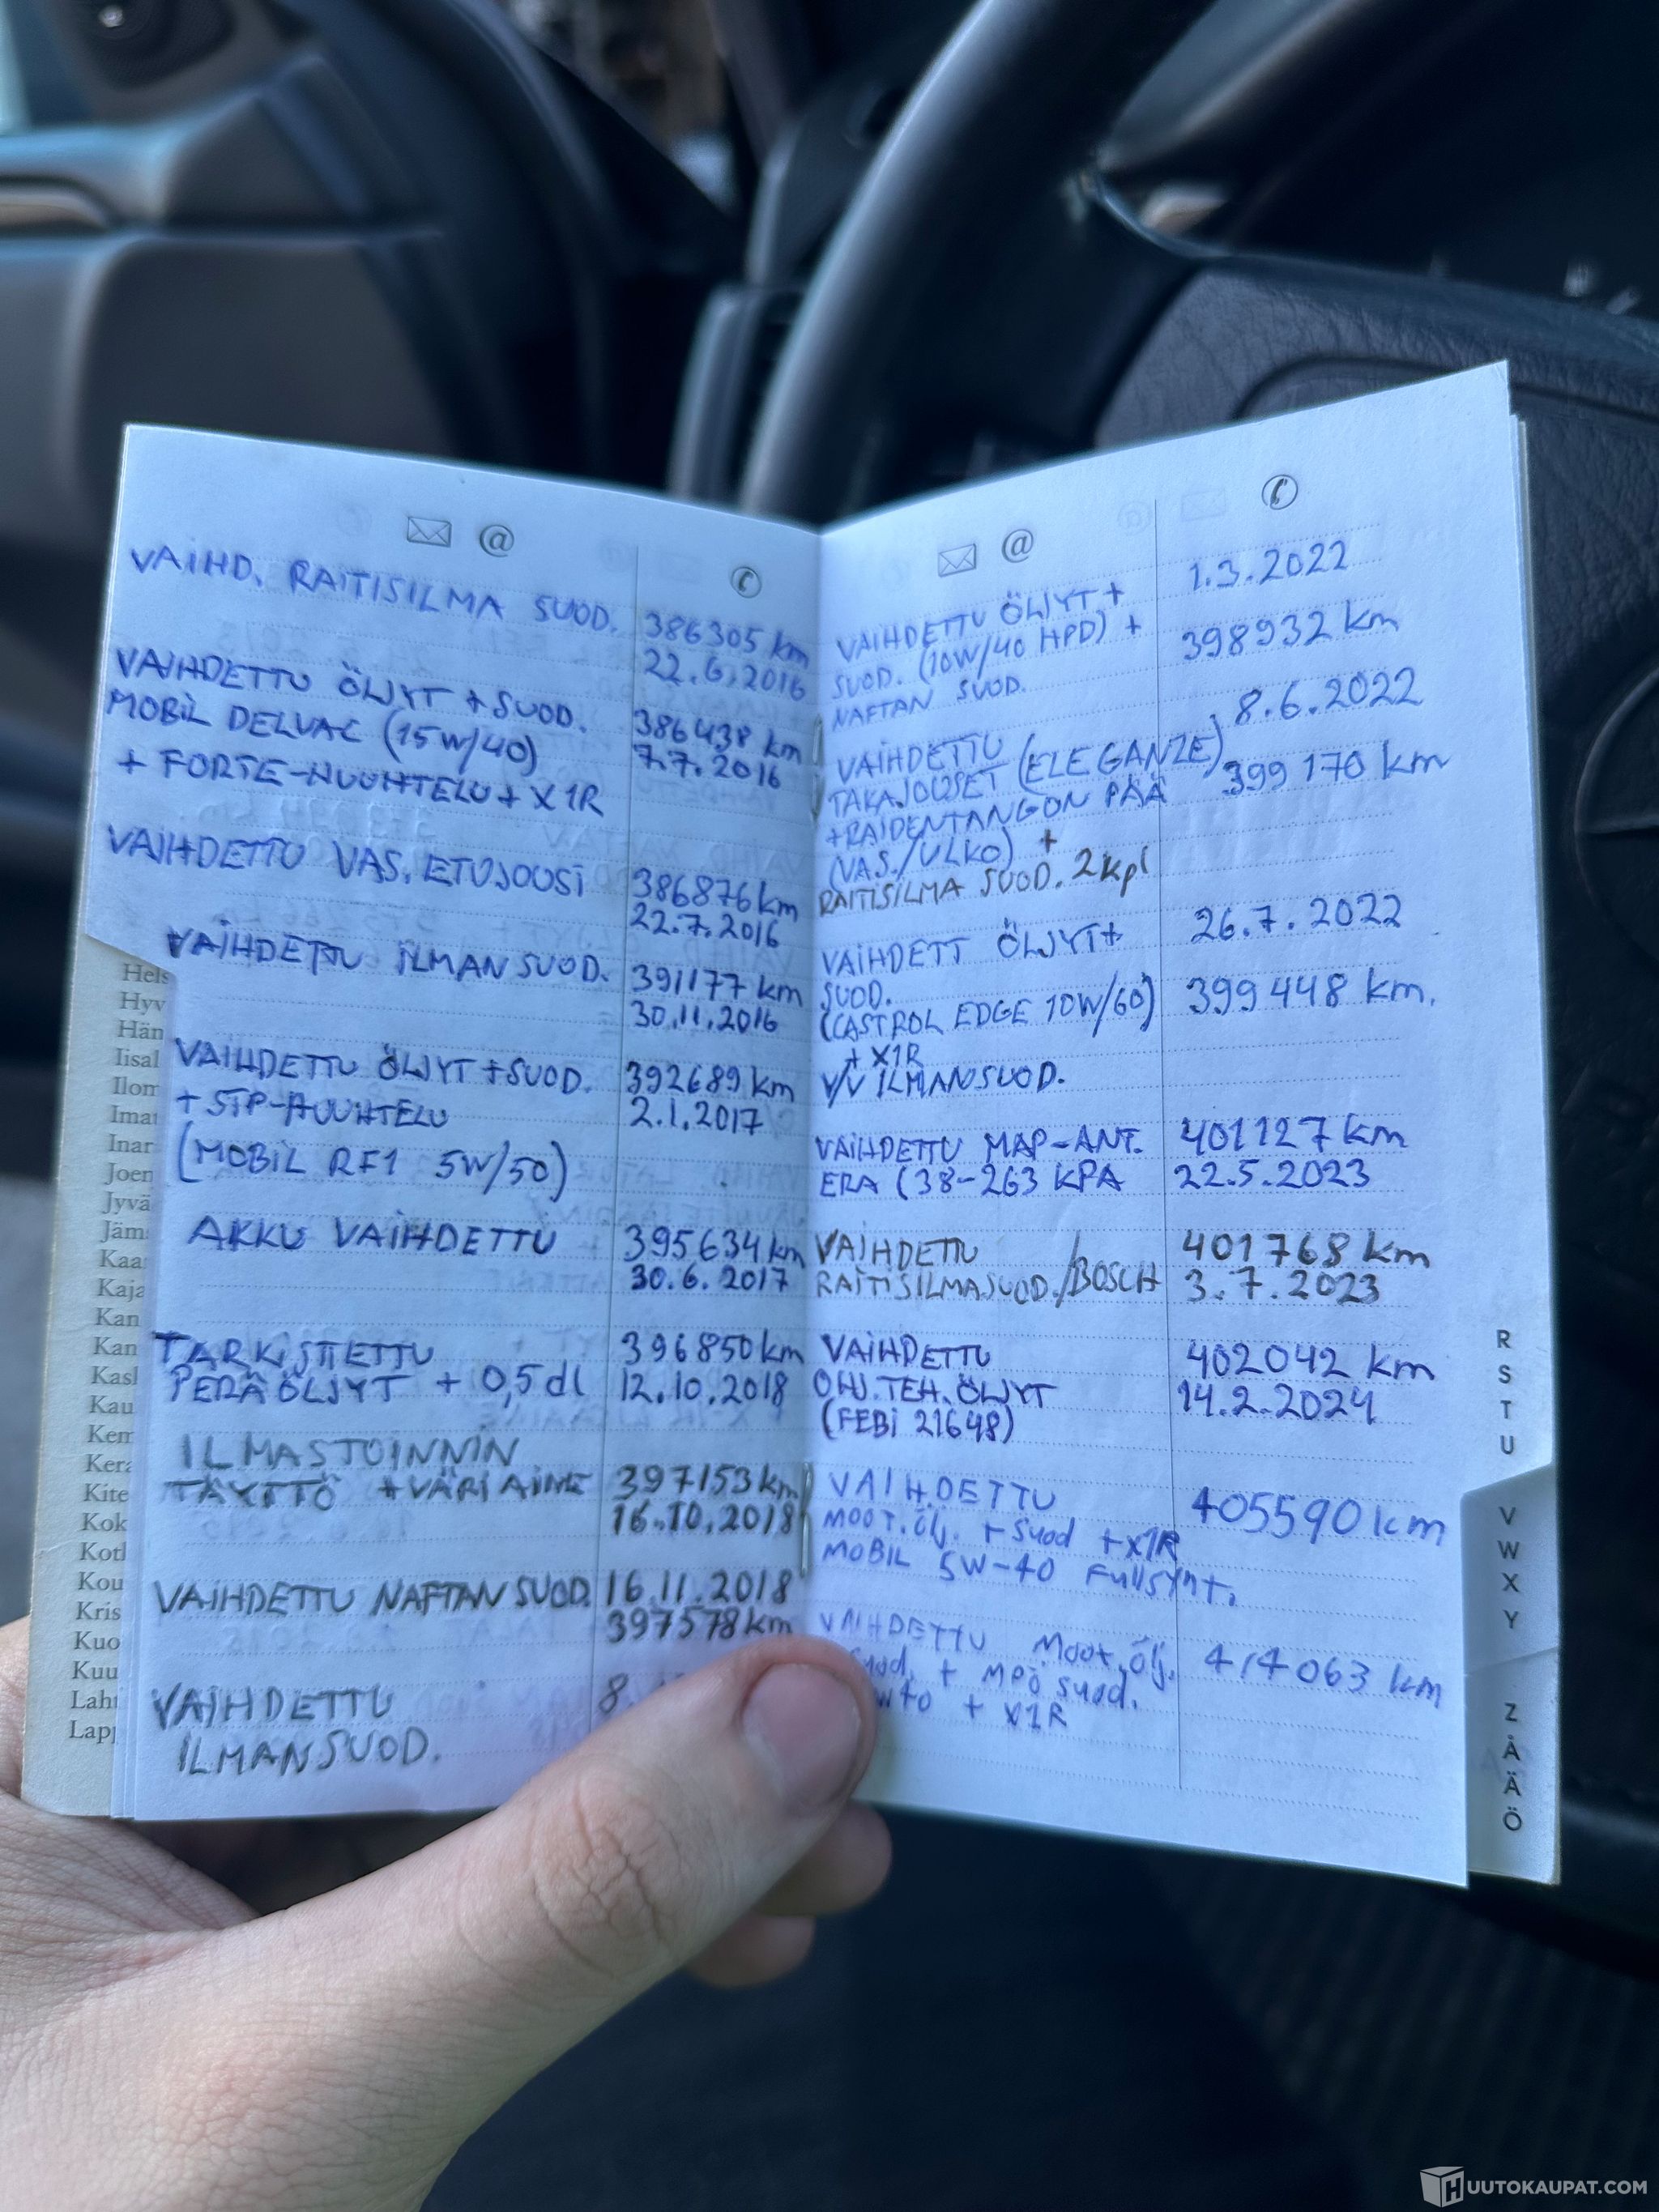 VAIHD. RAITISILMA SUOD.
386305 km
22.6.2016
VAIHDETTU ÖLJYT + SUOD.
MOBIL DELVAC (15W/40)
+ FORTE-HUUHTELU + X1R
386438 km
7.7.2016
VAIHDETTU VAS. ETUJOUSI
386876 km
22.7.2016
VAIHDETTU ILMAN SUOD.
391177 km
30.11.2016
VAIHDETTU ÖLJYT + SUOD.
+ STP-HUUHTELU
(MOBIL RF1 5W/50)
392689 km
2.1.2017
AKKU VAIHDETTU
395634 km
30.6.2017
TARKISTETTU
PERÄÖLJYT + 0,5 dl
396850 km
12.10.2018
ILMASTOINNIN
TÄYTTÖ + VÄRIAINE
397153 km
16.10.2018
VAIHDETTU NAFTAN SUOD.
16.11.2018
397578 km
VAIHDETTU
ILMANSUOD.
8.
Hels
Hyv
Hän
Iisal
Ilom
Imat
Inar
Joen
Jyvä
Jäm
Kaa
Kaja
Kan
Kan
Kasl
Kau
Kem
Kera
Kite
Kok
Kotl
Kou
Kris
Kuo
Kuu
Laht
Lapp
VAIHDETTU ÖLJYT +
SUOD. (10W/40 HPD) +
NAFTAN SUOD.
1.3.2022
398932 km
VAIHDETTU
TAKAJOUSET (ELEGANZE)
+ RAIDENTANGON PÄÄ
(VAS./ULKO) +
RAITISILMA SUOD. 2kpl
8.6.2022
399170 km
VAIHDETT ÖLJYT+
SUOD.
(CASTROL EDGE 10W/60)
+ X1R
V/V ILMANSUOD.
26.7.2022
399448 km.
VAIHDETTU MAP-ANT.
ERA (38-263 KPA
401127 km
22.5.2023
VAIHDETTU
RAITISILMASUOD./BOSCH
401768 km
3.7.2023
VAIHDETTU
OHJ.TEH.ÖLJYT
(FEBI 21648)
402042 km
14.2.2024
VAIHDETTU
MOOT.ÖLJ. + SUOD + X1R
MOBIL 5W-40 Fullsynt.
405590 km
VAIHDETTU Moot.ölj.
suod. + MPÖ suod.
+ X1R
414063 km
R
S
T
U
V
W
X
Y
Z
Å
Ä
Ö
HUUTOKAUPAT.COM